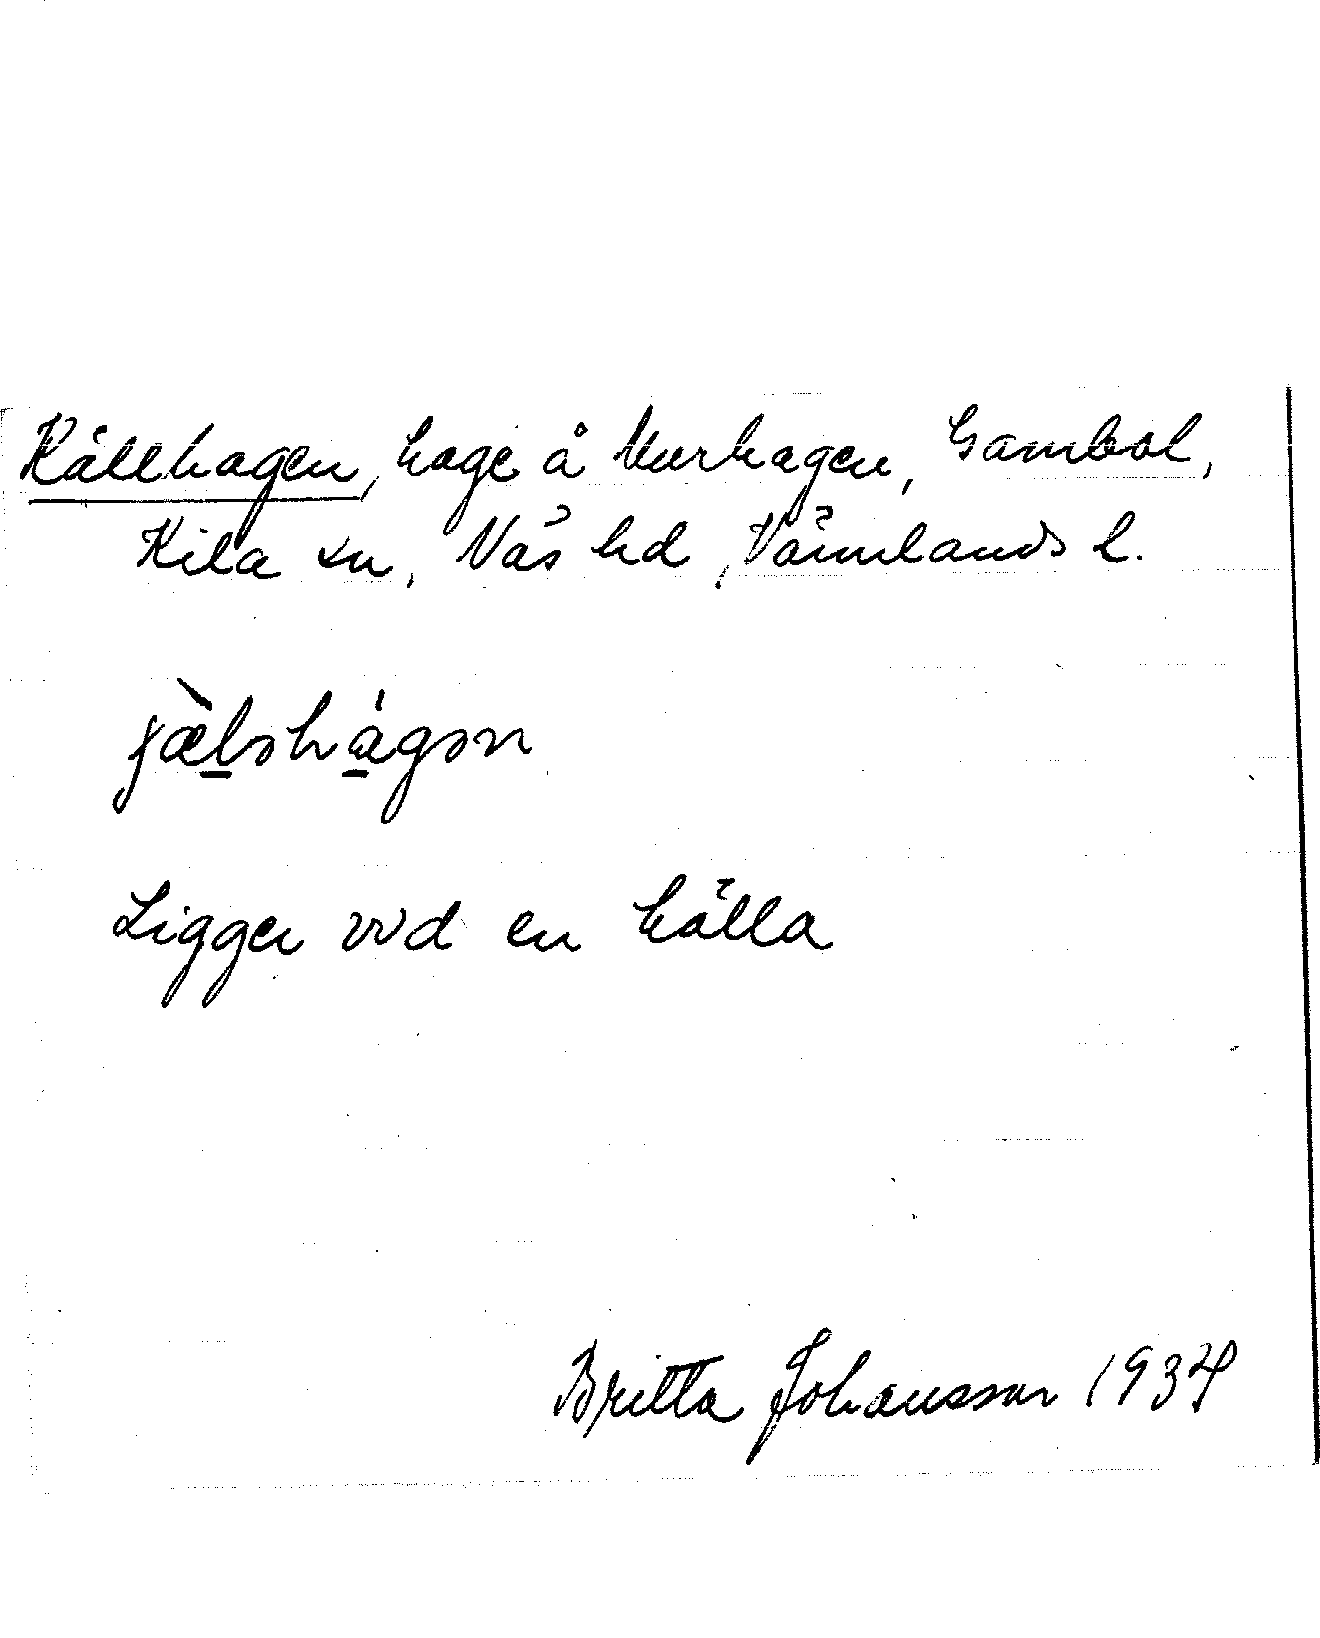 Källhagen, hage å Murhagen, Gambol,
Kila sn, Näs hd, Värmlands l.
jæ̀ləhágən
Ligger vid en källa
Britta Johansson 1934